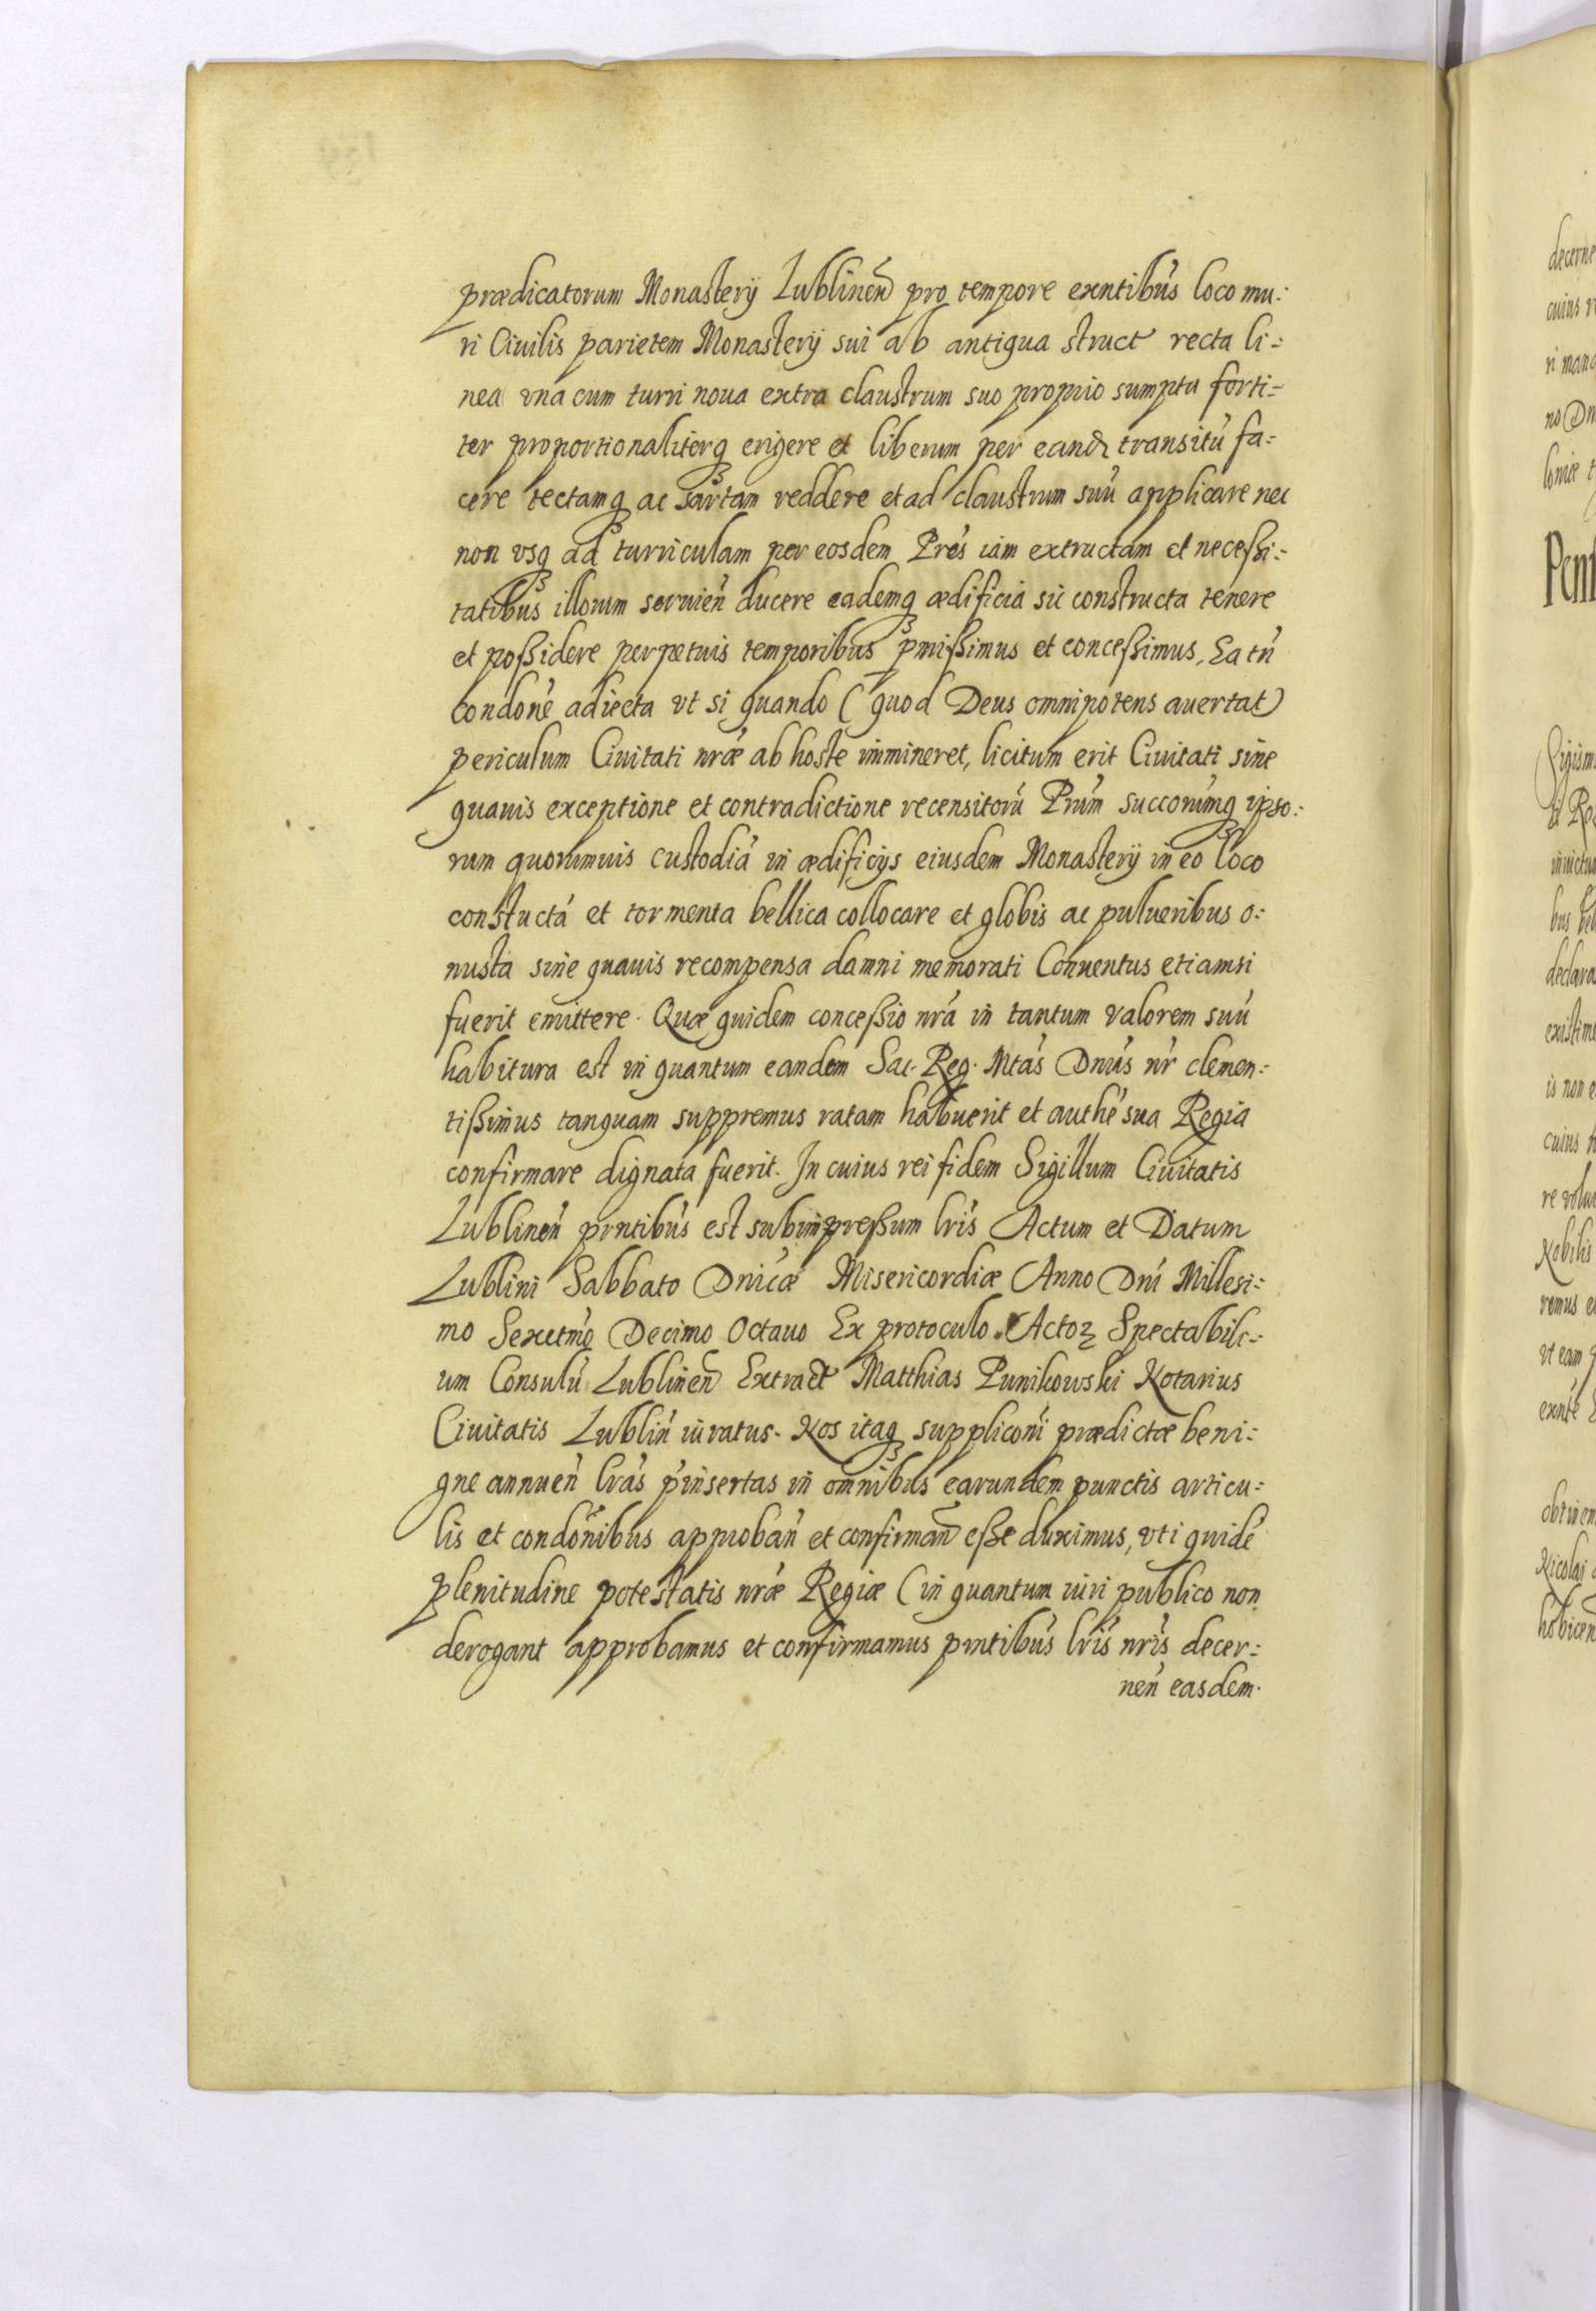 prædicatorum Monasterÿ Lublineñ pro tempore exntibūs loco mu:
ri Ciuilis parietem Monasterÿ sui ab antiqua struct recta li:
nea vna cum turri noua extra claustrum suo proprio sumptu forti:
ter proportionaliterqꝫ erigere et liberum per eandꝫ transitū fa:
cere tectamqꝫ ac sartam reddere et ad claustrum suū applicare nec
non vsqꝫ ad turriculam per eosdem Prēs iam extructam et neceßi:
tatibus illorum seruieñ ducere eademqꝫ ædificia sic constructa tenere
et poßidere perpetuis temporibus p̄mißimus et conceßimus, Ea tñ
condōne adiecta vt si quando (quod Deus omnipotens auertat)
periculum Ciuitati nrǣ ab hoste immineret, licitum erit Ciuitati sine
quauis exceptione et contradictione recensitorū Prūm succorūmqꝫ ipso:
rum quorumuis custodiā in ædificÿs eiusdem Monasterÿ in eo loco
constuctā et tormenta bellica collocare et globis ac pulueribus o:
nusta sine quauis recompensa damni memorati Conuentus etiamsi
fuerit emittere. Quæ quidem conceßio nrā in tantum valorem suū
habitura est in quantum eandem Sac. Reg. Mtās Dnūs nr̄ clemen:
tißimus tanquam suppremus ratam habuerit et authē sua Regia
confirmare dignata fuerit. In cuius rei fidem Sigillum Ciuitatis
Lublineñ pntibūs est subimpreßum lrīs Actum et Datum
Lublini Sabbato Dnīcæ Misericordiæ Anno Dnī Millesi:
mo Sexctmō Decimo Octauo Ex protoculo Actoꝝ Spectabili:
um Consulū Lublineñ Extract Matthias Punikowski Notarius
Ciuitatis Lubliñ iuratus. Nos itaqꝫ supplicōni prædictæ beni:
gne annueñ lrās p̄insertas in omnibus earundem punctis articu:
lis et condōnibus approbañ et confirmañ eße duximus, vti quidē
plenitudine potestatis nrǣ Regiæ (in quantum iuri publico non
derogant approbamus et confirmamus pntibūs lrīs nrīs decer:
neñ easdem.